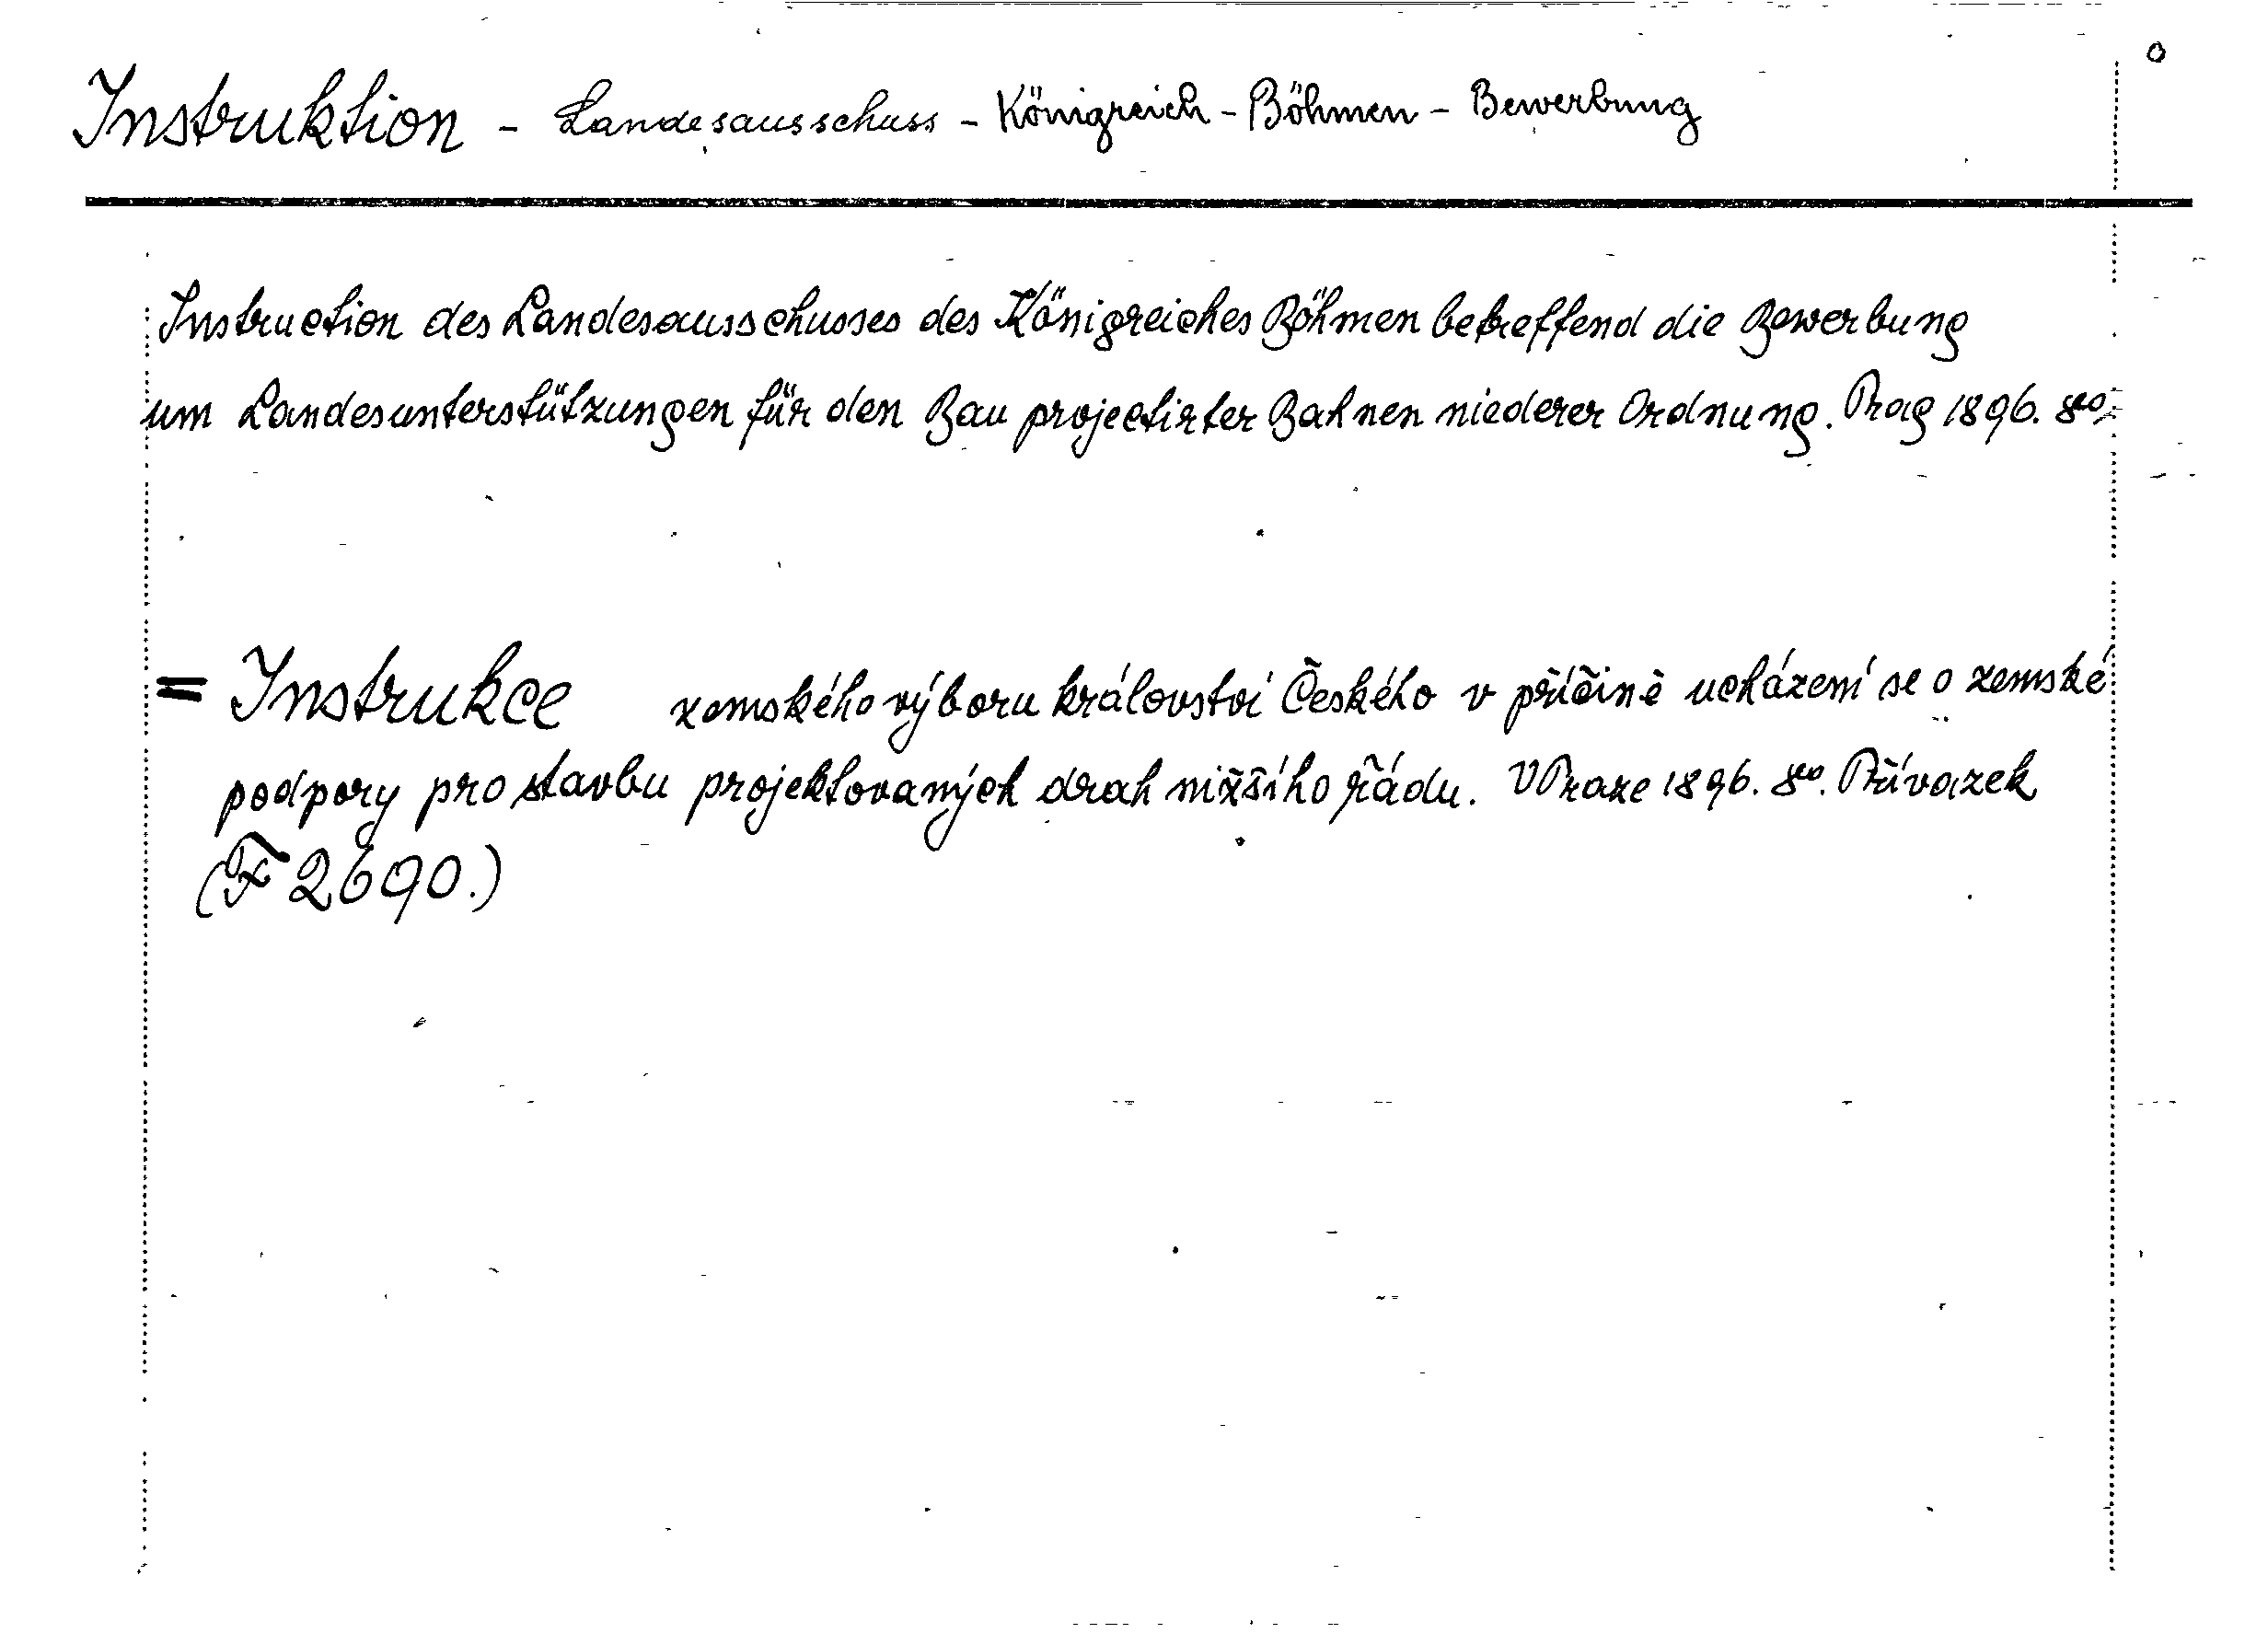 Instruktion - Landesausschuss - Königreich - Böhmen - Bewerbung
Instruction des Landesausschusses des Königreiches Böhmen betreffend die Bewerbung
um Landesunterstützungen für den Bau projectirter Bahnen niederer Ordnung. Prag 1896. 8o.
= Instrukce zemského výboru království Českého v příčině ucházení se o zemské
podpory pro stavbu projektovaných drah nižšího řádu. V Praze 1896. 8o. Přívazek
(F 2690.)